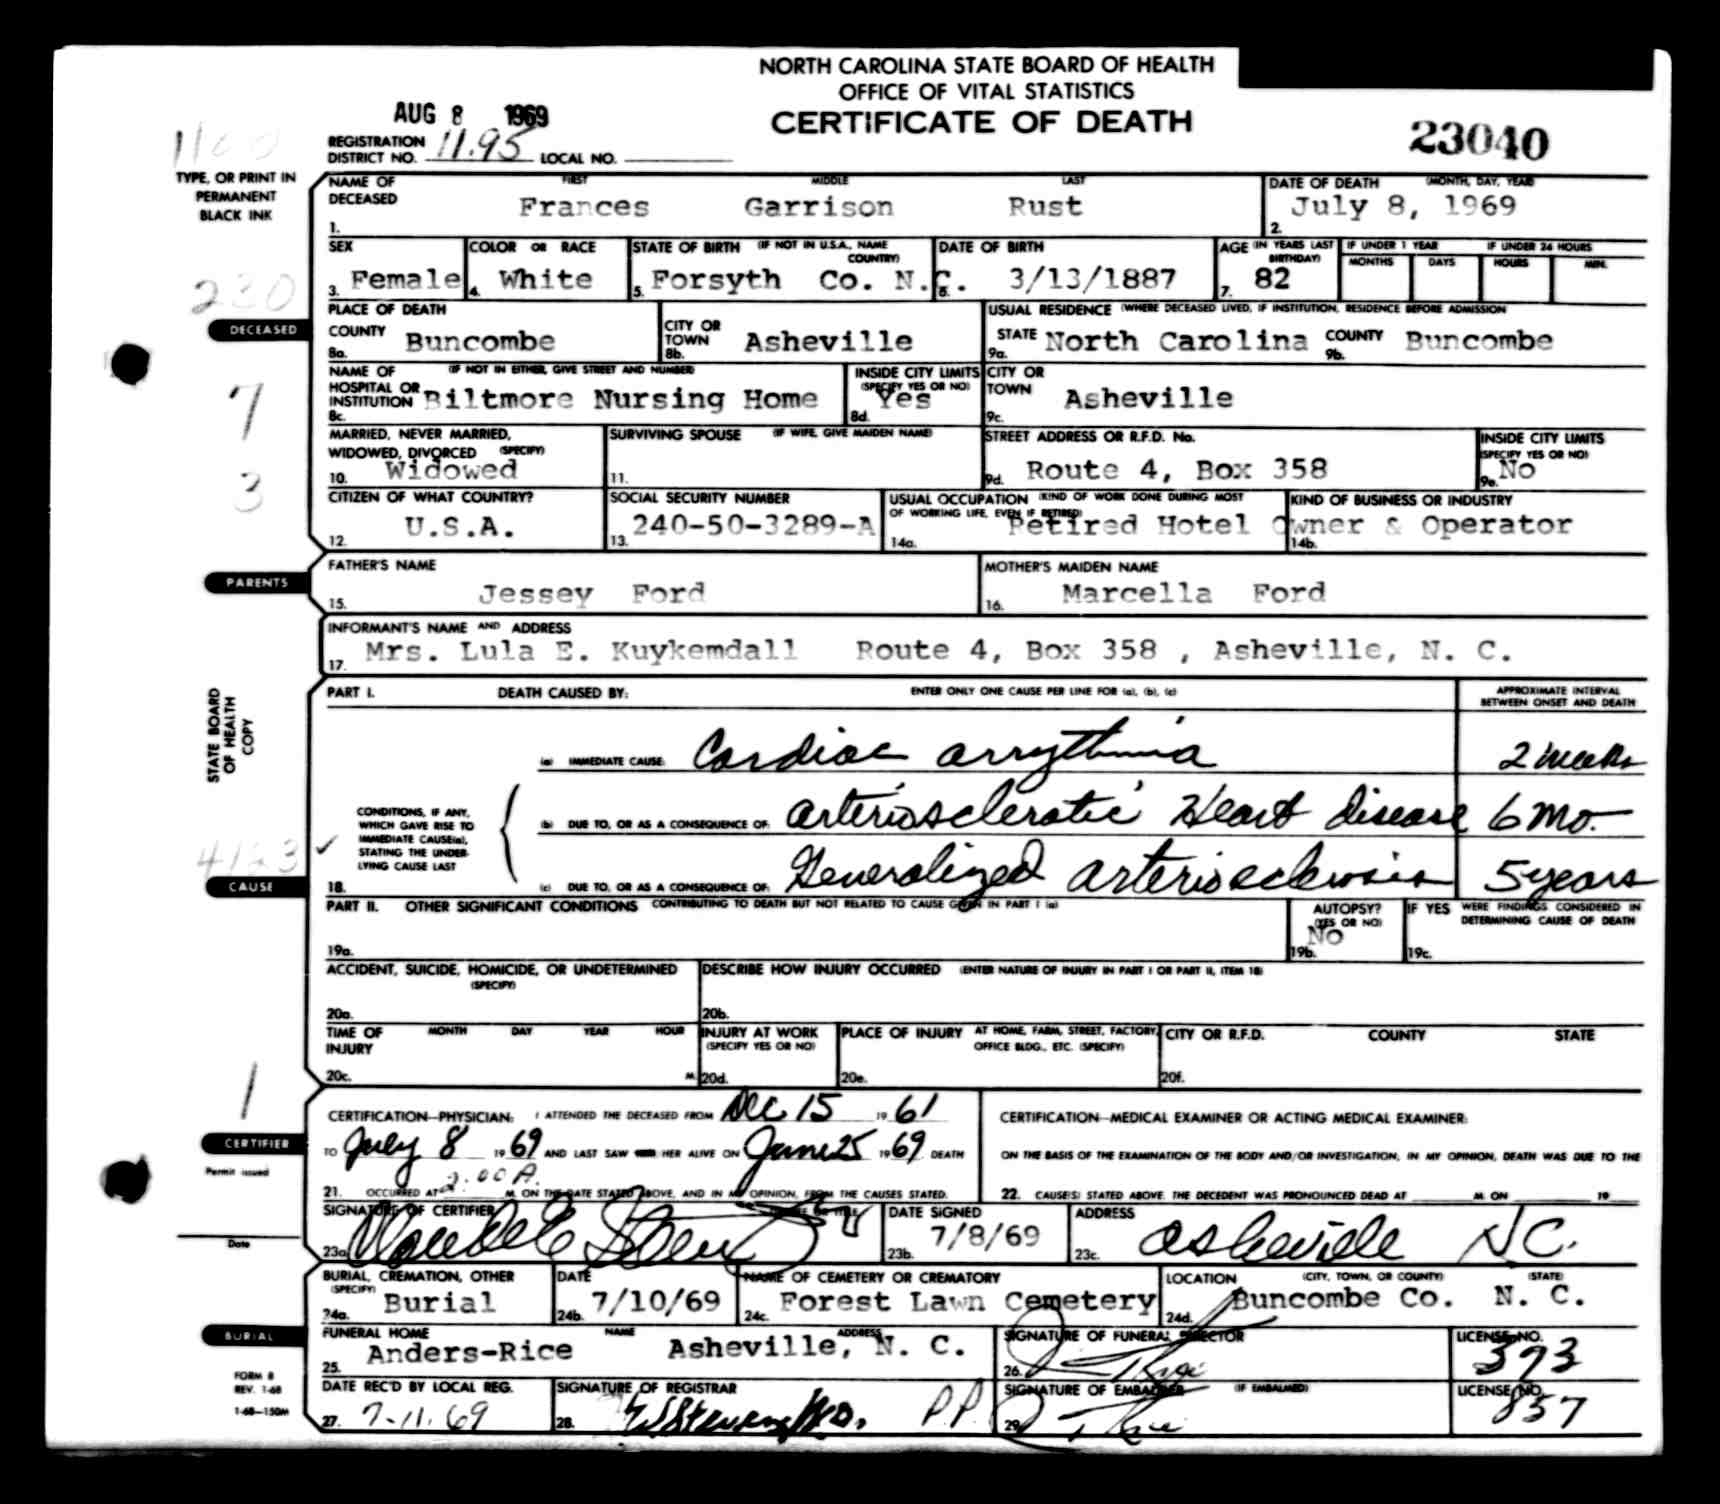 NORTH CAROLINA STATE BOARD OF HEALTH
OFFICE OF VITAL STATISTICS
CERTIFICATE OF DEATH
AUG 8 1969
23040
REGISTRATION DISTRICT NO. 11.95 LOCAL NO.
1100
TYPE, OR PRINT IN PERMANENT BLACK INK
NAME OF DECEASED FIRST MIDDLE LAST
1. Frances Garrison Rust
DATE OF DEATH (MONTH, DAY, YEAR)
2. July 8, 1969
SEX 3. Female
COLOR OR RACE 4. White
STATE OF BIRTH (IF NOT IN U.S.A., NAME COUNTRY) 5. Forsyth Co. N.C.
DATE OF BIRTH 6. 3/13/1887
AGE (IN YEARS LAST BIRTHDAY) 7. 82
IF UNDER 1 YEAR MONTHS DAYS
IF UNDER 24 HOURS HOURS MIN.
230
DECEASED
PLACE OF DEATH
COUNTY 8a. Buncombe
CITY OR TOWN 8b. Asheville
USUAL RESIDENCE (WHERE DECEASED LIVED, IF INSTITUTION, RESIDENCE BEFORE ADMISSION
STATE 9a. North Carolina
COUNTY 9b. Buncombe
NAME OF HOSPITAL OR INSTITUTION (IF NOT IN EITHER, GIVE STREET AND NUMBER) 8c. Biltmore Nursing Home
INSIDE CITY LIMITS (SPECIFY YES OR NO) 8d. Yes
CITY OR TOWN 9c. Asheville
7
MARRIED, NEVER MARRIED, WIDOWED, DIVORCED (SPECIFY) 10. Widowed
SURVIVING SPOUSE (IF WIFE, GIVE MAIDEN NAME) 11.
STREET ADDRESS OR R.F.D. No. 9d. Route 4, Box 358
INSIDE CITY LIMITS (SPECIFY YES OR NO) 9e. No
3
CITIZEN OF WHAT COUNTRY? 12. U.S.A.
SOCIAL SECURITY NUMBER 13. 240-50-3289-A
USUAL OCCUPATION (KIND OF WORK DONE DURING MOST OF WORKING LIFE, EVEN IF RETIRED) 14a. Retired Hotel Owner & Operator
KIND OF BUSINESS OR INDUSTRY 14b.
PARENTS
FATHER'S NAME 15. Jessey Ford
MOTHER'S MAIDEN NAME 16. Marcella Ford
INFORMANT'S NAME AND ADDRESS
17. Mrs. Lula E. Kuykemdall Route 4, Box 358 , Asheville, N. C.
STATE BOARD OF HEALTH COPY
PART I. DEATH CAUSED BY: ENTER ONLY ONE CAUSE PER LINE FOR (a), (b), (c)
APPROXIMATE INTERVAL BETWEEN ONSET AND DEATH
(a) IMMEDIATE CAUSE: Cardiac arrythmia 2 weeks
CONDITIONS, IF ANY, WHICH GAVE RISE TO IMMEDIATE CAUSE(a), STATING THE UNDERLYING CAUSE LAST
(b) DUE TO, OR AS A CONSEQUENCE OF: arteriosclerotic Heart disease 6 Mo.
4123
CAUSE
18. (c) DUE TO, OR AS A CONSEQUENCE OF: Generalized arteriosclerosis 5 years
PART II. OTHER SIGNIFICANT CONDITIONS CONTRIBUTING TO DEATH BUT NOT RELATED TO CAUSE GIVEN IN PART I (a)
19a.
AUTOPSY? (YES OR NO) 19b. No
IF YES WERE FINDINGS CONSIDERED IN DETERMINING CAUSE OF DEATH 19c.
ACCIDENT, SUICIDE, HOMICIDE, OR UNDETERMINED (SPECIFY) 20a.
DESCRIBE HOW INJURY OCCURRED (ENTER NATURE OF INJURY IN PART I OR PART II, ITEM 18) 20b.
TIME OF INJURY MONTH DAY YEAR HOUR 20c. M.
INJURY AT WORK (SPECIFY YES OR NO) 20d.
PLACE OF INJURY AT HOME, FARM, STREET, FACTORY, OFFICE BLDG., ETC. (SPECIFY) 20e.
CITY OR R.F.D. COUNTY STATE 20f.
1
CERTIFIER
Permit issued
Date
CERTIFICATION—PHYSICIAN: I ATTENDED THE DECEASED FROM Dec 15 1961
TO July 8 1969 AND LAST SAW HER ALIVE ON June 25 1969 DEATH
21. OCCURRED AT 2:00 A. M. ON THE DATE STATED ABOVE, AND IN MY OPINION, FROM THE CAUSES STATED.
CERTIFICATION—MEDICAL EXAMINER OR ACTING MEDICAL EXAMINER:
ON THE BASIS OF THE EXAMINATION OF THE BODY AND/OR INVESTIGATION, IN MY OPINION, DEATH WAS DUE TO THE
22. CAUSE(S) STATED ABOVE. THE DECEDENT WAS PRONOUNCED DEAD AT M. ON 19
SIGNATURE OF CERTIFIER 23a.
DATE SIGNED 23b. 7/8/69
ADDRESS 23c. Asheville NC.
BURIAL, CREMATION, OTHER (SPECIFY) 24a. Burial
DATE 24b. 7/10/69
NAME OF CEMETERY OR CREMATORY 24c. Forest Lawn Cemetery
LOCATION (CITY, TOWN, OR COUNTY) (STATE) 24d. Buncombe Co. N. C.
BURIAL
FUNERAL HOME NAME ADDRESS 25. Anders-Rice Asheville, N. C.
SIGNATURE OF FUNERAL DIRECTOR 26.
LICENSE NO. 393
FORM 8
REV. 1-68
1-68—150M
DATE REC'D BY LOCAL REG. 27. 7-11-69
SIGNATURE OF REGISTRAR 28. Stevens M.D. P.P.
SIGNATURE OF EMBALMER (IF EMBALMED) 29.
LICENSE NO. 857